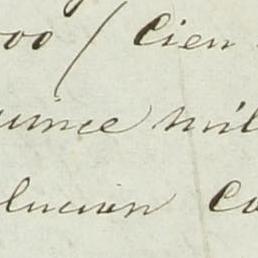 000 / Cien
uince mil
lucion Co